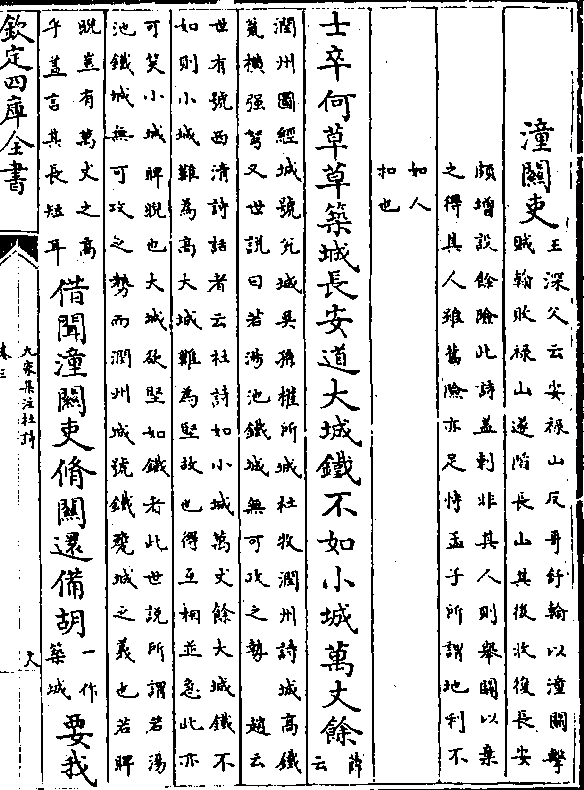 潼關吏
王深父云安禄山反哥舒翰以潼關擊
賊翰敗禄山遂陷長山其後收復長安
頗增設餘險此詩蓋刺非其人則舉關以棄
之得其人雖舊險亦足恃孟子所謂地利不
如人
和也
士卒何草草築城長安道大城鐵不如小城萬丈餘
薛
云
潤州圖經城號瓮城吳孫權所城杜牧潤州詩城高鐵
瓮橫强弩又世說曰若湯池鐵城無可攻之勢 趙云
世有號西清詩話者云杜詩如小城萬丈餘大城鐵不
如則小城難為高大城難為堅故也得互相並急此亦
可笑小城睥睨也大城欲堅如鐵者此世說所謂若湯
池鐵城無可攻之勢而潤州城號鐵甕城之義也若睥
睨豈有萬丈之高
乎蓋言其長短耳
借問潼關吏脩關還備胡
一作
築城
要我
欽定四庫全書
九家集注杜詩
卷三